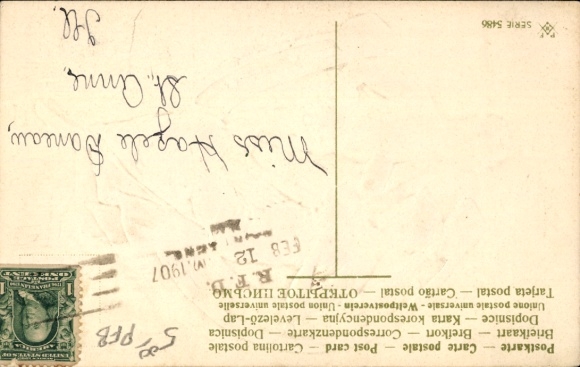 Postkarte — Carte postale — Post card — Cartolina postale
Briefkaart — Brefkort — Correspondenzkarte — Dopisnica
Dopisnice — Karta korespondencyjna — Levelező-Lap
Unione postale universale - Weltpostverein - Union postale universelle
Tarjeta postal — Cartão postal — ОТКРЫТОЕ ПИСЬМО
R.F.D.
FEB 12 1907
ONE CENT
1 1
5 00 PFB
Miss Hazele
St. Anne,
Ill.
SERIE 5486